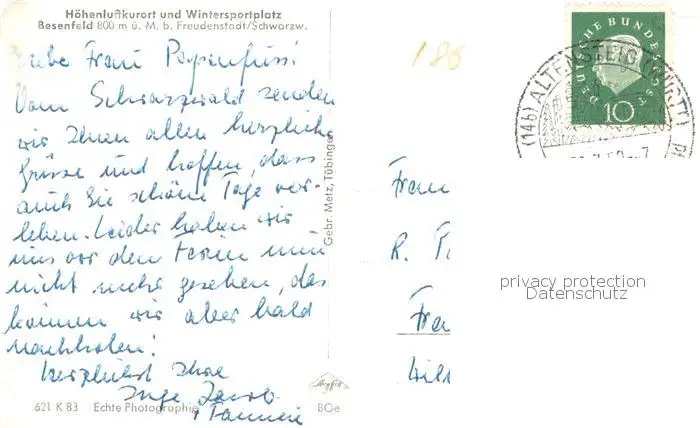 Höhenluftkurort und Wintersportplatz
Besenfeld 800 m ü. M. b. Freudenstadt/Schwarzw.
Liebe Frau Papenfuss!
Vom Schwarzwald senden
wir Ihnen allen herzliche
Grüsse und hoffen, dass
auch Sie schöne Tage ver-
leben. Leider haben wir
uns vor den Ferien nun
nicht mehr gesehen, das
können wir aber bald
nachholen!
Herzlichst Ihre
Inge Jacob
Familie
621 K 83 Echte Photographie
BOe
Agfa
Gebr. Metz, Tübingen
186
DEUTSCHE BUNDESPOST
10
(14b) ALTENSTEIG (WÜRTT)
Frau
R.
privacy protection
Datenschutz